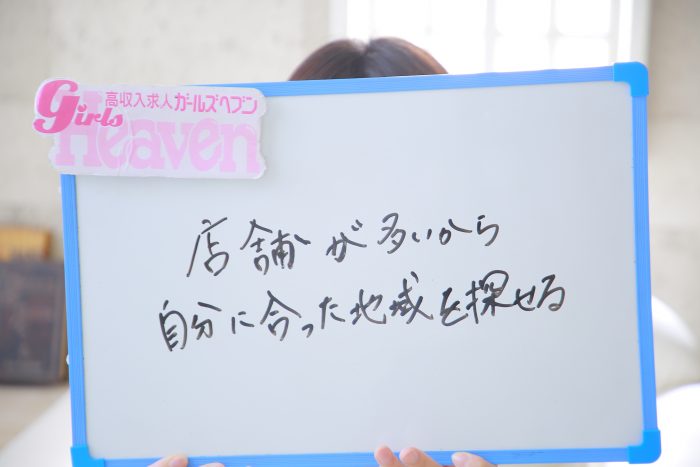 高収入求人ガールズヘブン
Girls
Heaven
店舗が多いから
自分に合った地域を探せる